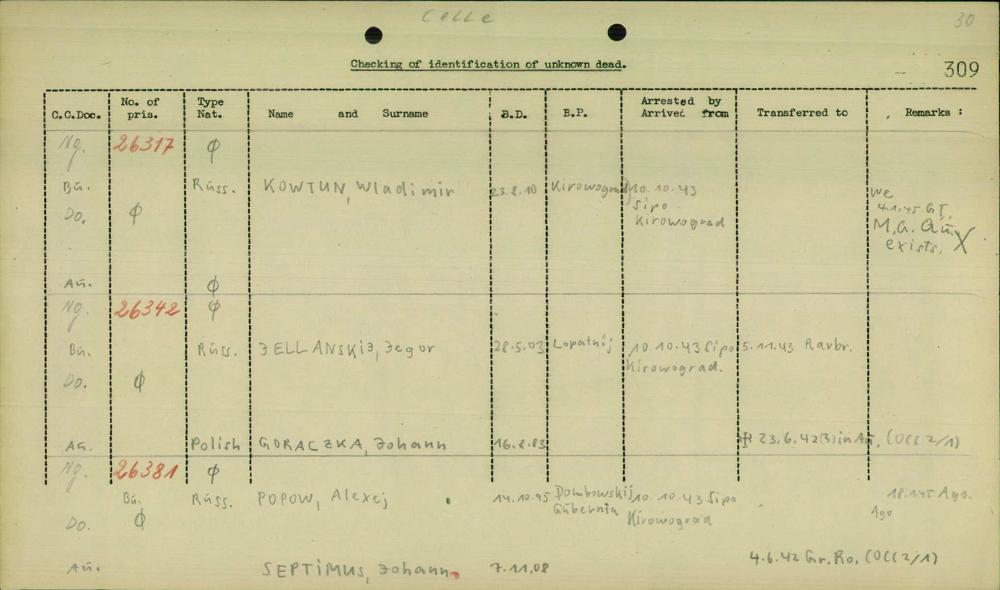 Celle
30
Checking of identification of unknown dead.
309
C.C.Doc. No. of pris. Type Nat. Name and Surname B.D. B.P. Arrested by Arrived from Transferred to Remarks :
Ng. 26317 φ
Bu. Russ. KOWTUN, Wladimir 23.8.10 Kirowograd 10.10.43
Sipo
Kirowograd
We
4.1.45 GT.
M.G. Au.
exists. X
Do. φ
Au. φ
Ng. 26342 φ
Bu. Russ. JELLANSKIJ, Jegor 28.5.03 Lopatnij 10.10.43 Sipo 5.11.43 Ravbr.
Kirowograd.
Do. φ
Au. Polish GORACZKA, Johann 16.8.83 23.6.42(3) in Au. (OCC 2/1)
Ng. 26381 φ
Bu. Russ. POPOW, Alexej 14.10.95 Dombowskij 10.10.43 Sipo 18.1.45 Ago.
Gubernia Kirowograd Ago
Do. φ
Au. SEPTIMUS, Johann 7.11.08 4.6.42 Gr. Ro. (OCC 2/1)